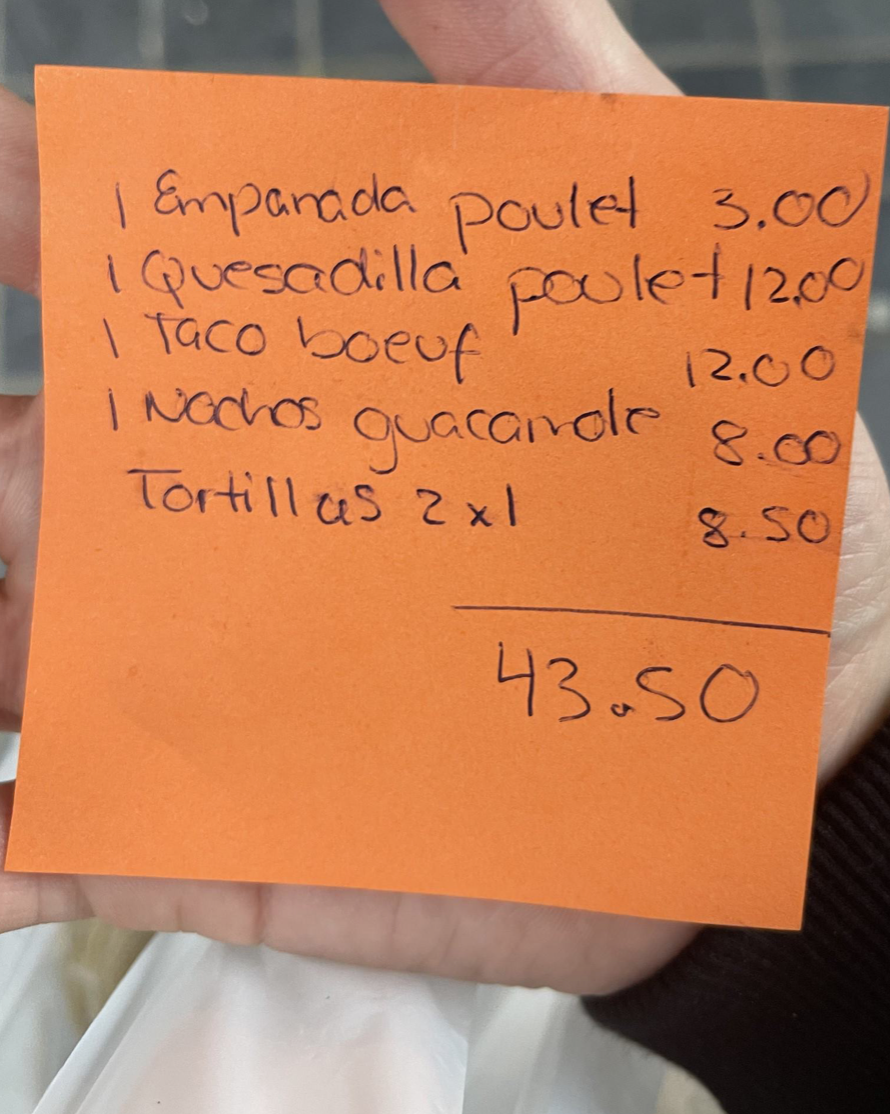 1 Empanada poulet 3.00
1 Quesadilla poulet 12.00
1 Taco boeuf 12.00
1 Nachos guacamole 8.00
Tortillas 2x1 8.50
43.50